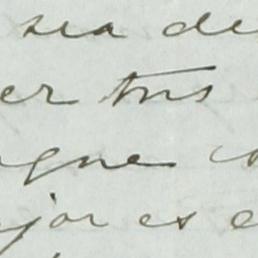 sea de
er tus
gue
jor es e